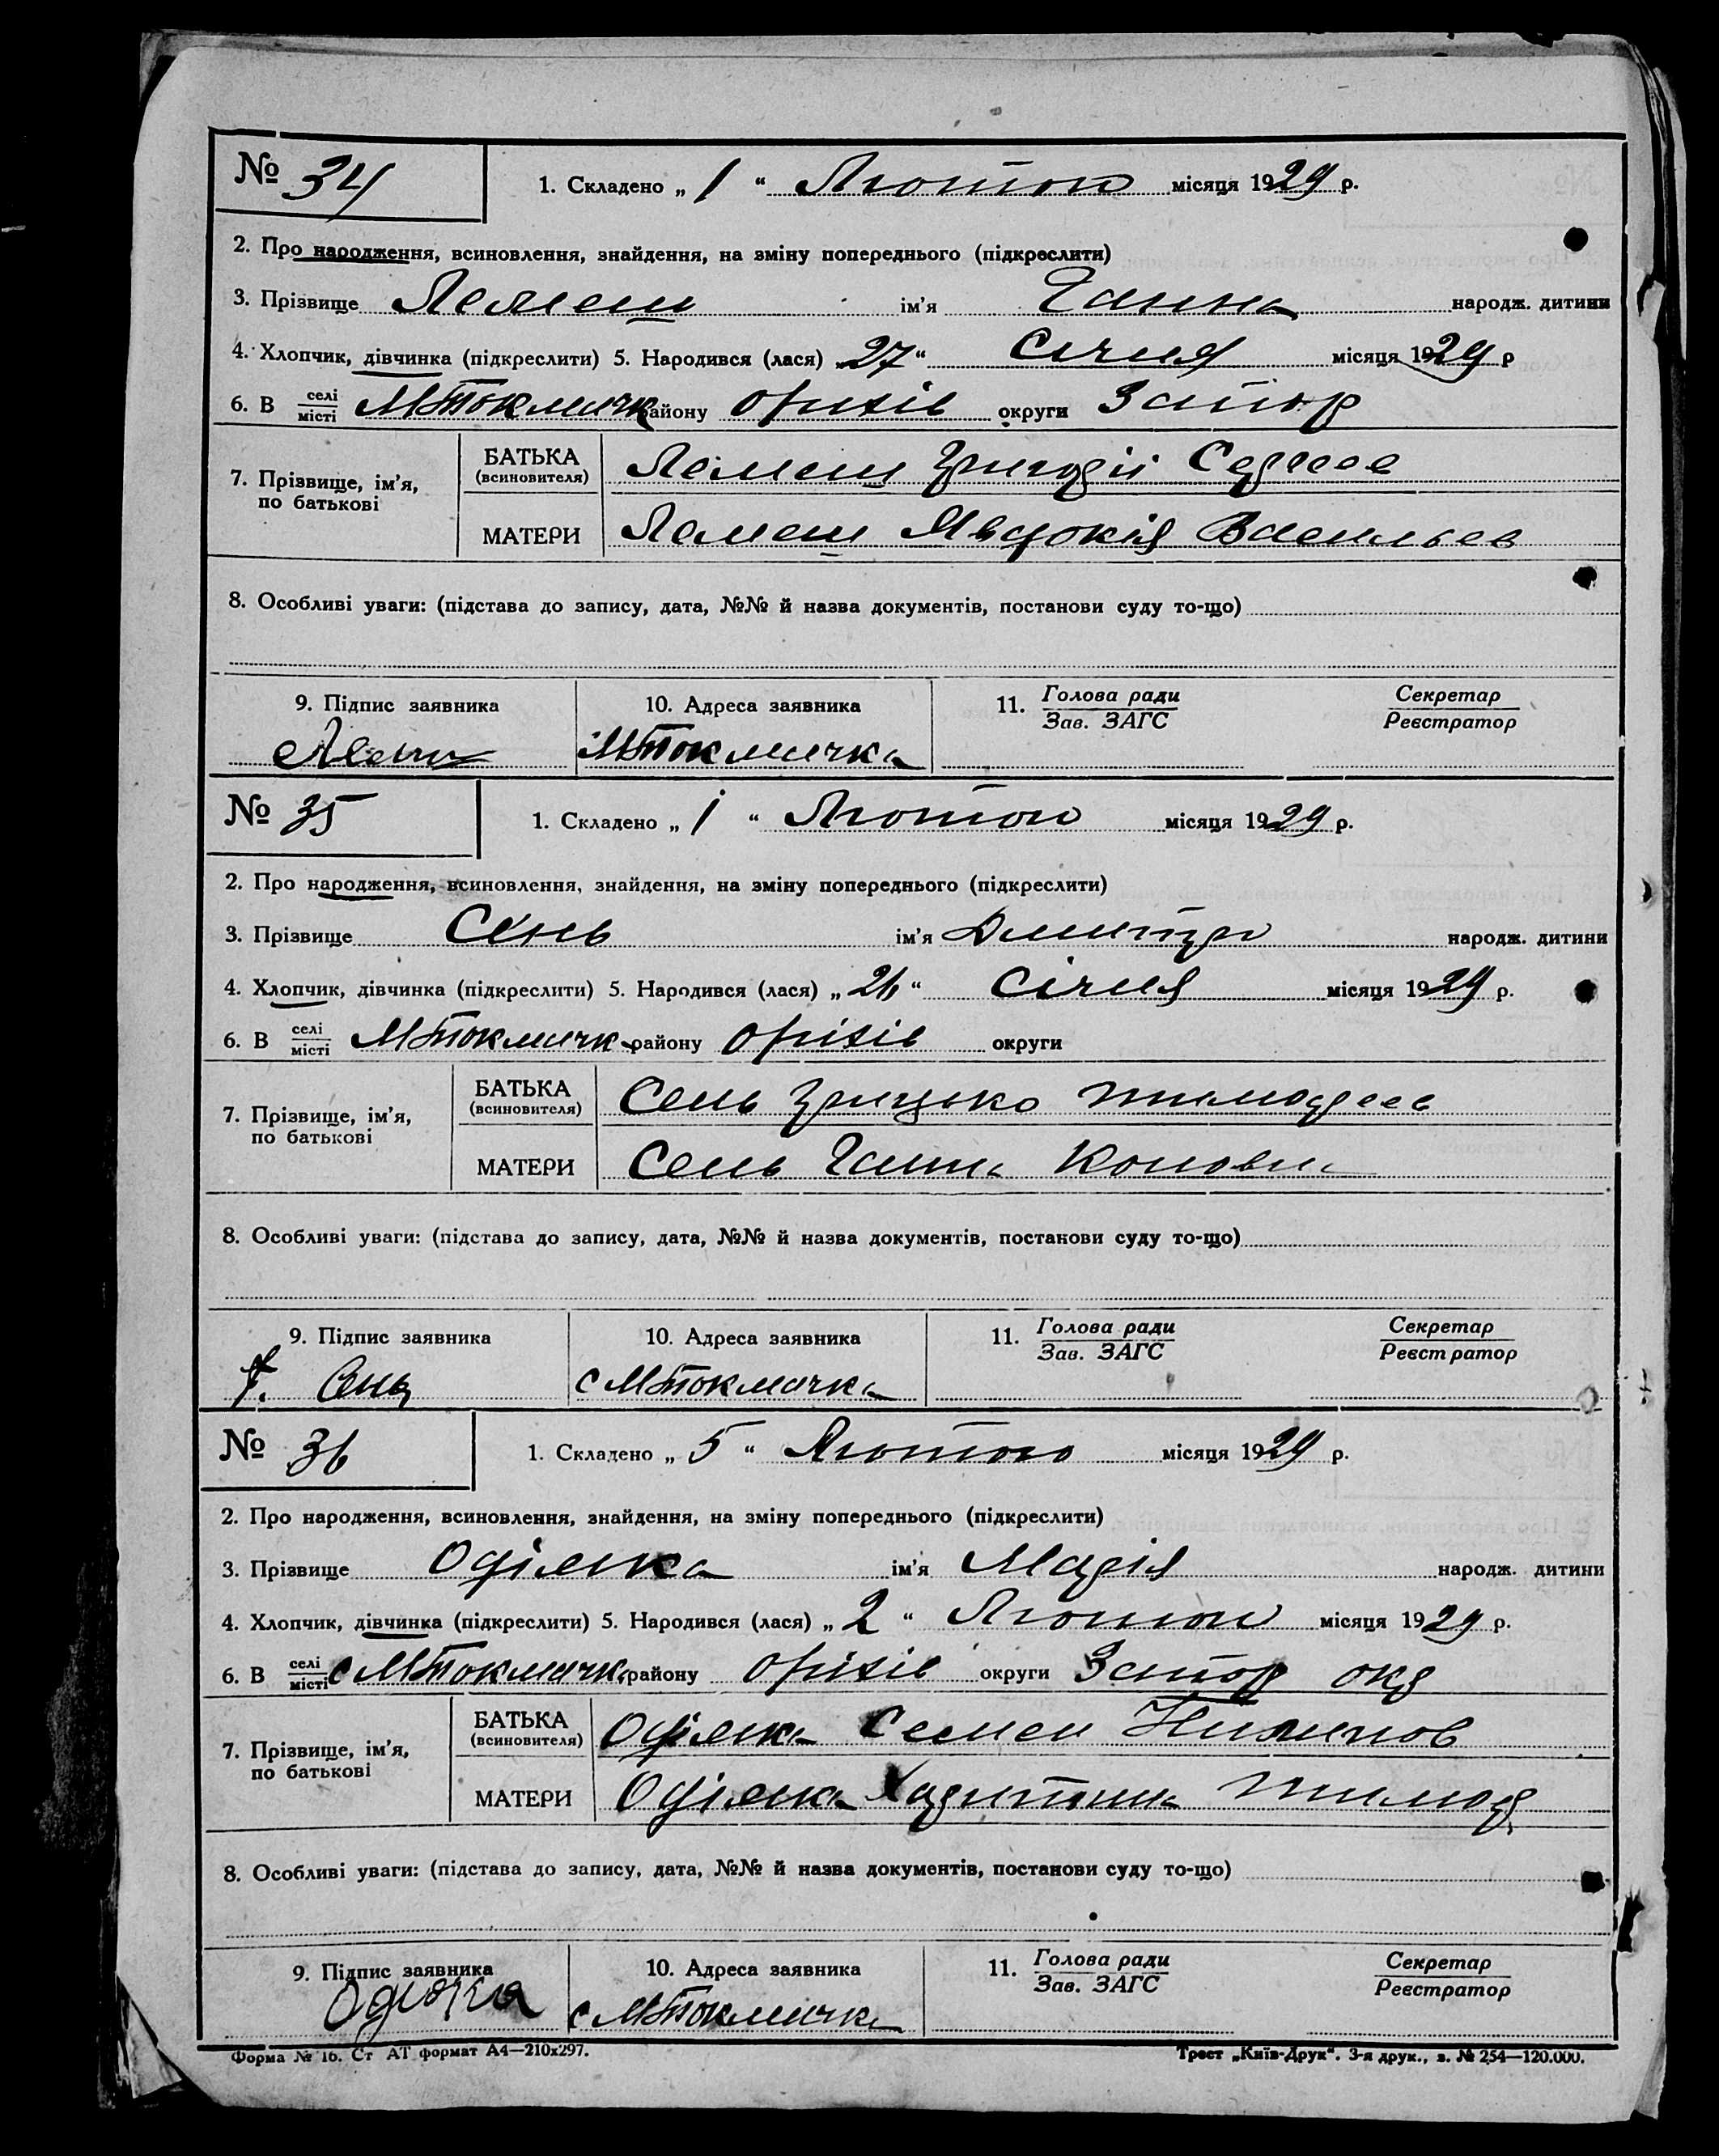 № 34
1. Складено „ 1 “ Лютого місяця 1929 р.
2. Про народження, всиновлення, знайдення, на зміну попереднього (підкреслити)
3. Прізвище Лемеш ім'я Ганна народж. дитини
4. Хлопчик, дівчинка (підкреслити) 5. Народився (лася) „27“ Січня місяця 1929 р
6. В селі місті МТокмачк району Оріхів округи Запор
7. Прізвище, ім'я, по батькові
БАТЬКА (всиновителя) Лемеш Григорій Сергеев
МАТЕРИ Лемеш Явдокія Васильев
8. Особливі уваги: (підстава до запису, дата, №№ й назва документів, постанови суду то-що)
9. Підпис заявника 10. Адреса заявника 11. Голова ради Зав. ЗАГС Секретар Реєстратор
МТокмачка
№ 35
1. Складено „ 1 “ Лютого місяця 1929 р.
2. Про народження, всиновлення, знайдення, на зміну попереднього (підкреслити)
3. Прізвище Сень ім'я Дмитро народж. дитини
4. Хлопчик, дівчинка (підкреслити) 5. Народився (лася) „ 26 “ Січня місяця 1929 р.
6. В селі місті МТокмачк району Оріхів округи
7. Прізвище, ім'я, по батькові
БАТЬКА (всиновителя) Сень Грицько Тимофеев
МАТЕРИ Сень Ганна
8. Особливі уваги: (підстава до запису, дата, №№ й назва документів, постанови суду то-що)
9. Підпис заявника 10. Адреса заявника 11. Голова ради Зав. ЗАГС Секретар Реєстратор
Сень с МТокмачка
№ 36
1. Складено „ 5 “ Лютого місяця 1929 р.
2. Про народження, всиновлення, знайдення, на зміну попереднього (підкреслити)
3. Прізвище Одіяка ім'я Марія народж. дитини
4. Хлопчик, дівчинка (підкреслити) 5. Народився (лася) „ 2 “ Лютого місяця 1929 р.
6. В селі місті с МТокмачк району Оріхів округи Запор окр
7. Прізвище, ім'я, по батькові
БАТЬКА (всиновителя) Одіяка Семен
МАТЕРИ Одіяка Харитина Тимоф
8. Особливі уваги: (підстава до запису, дата, №№ й назва документів, постанови суду то-що)
9. Підпис заявника 10. Адреса заявника 11. Голова ради Зав. ЗАГС Секретар Реєстратор
Одіяка с МТокмачка
Форма № 16. Ст АТ формат А4—210х297. Трест „Київ-Друк“. 3-я друк., з. № 254—120.000.